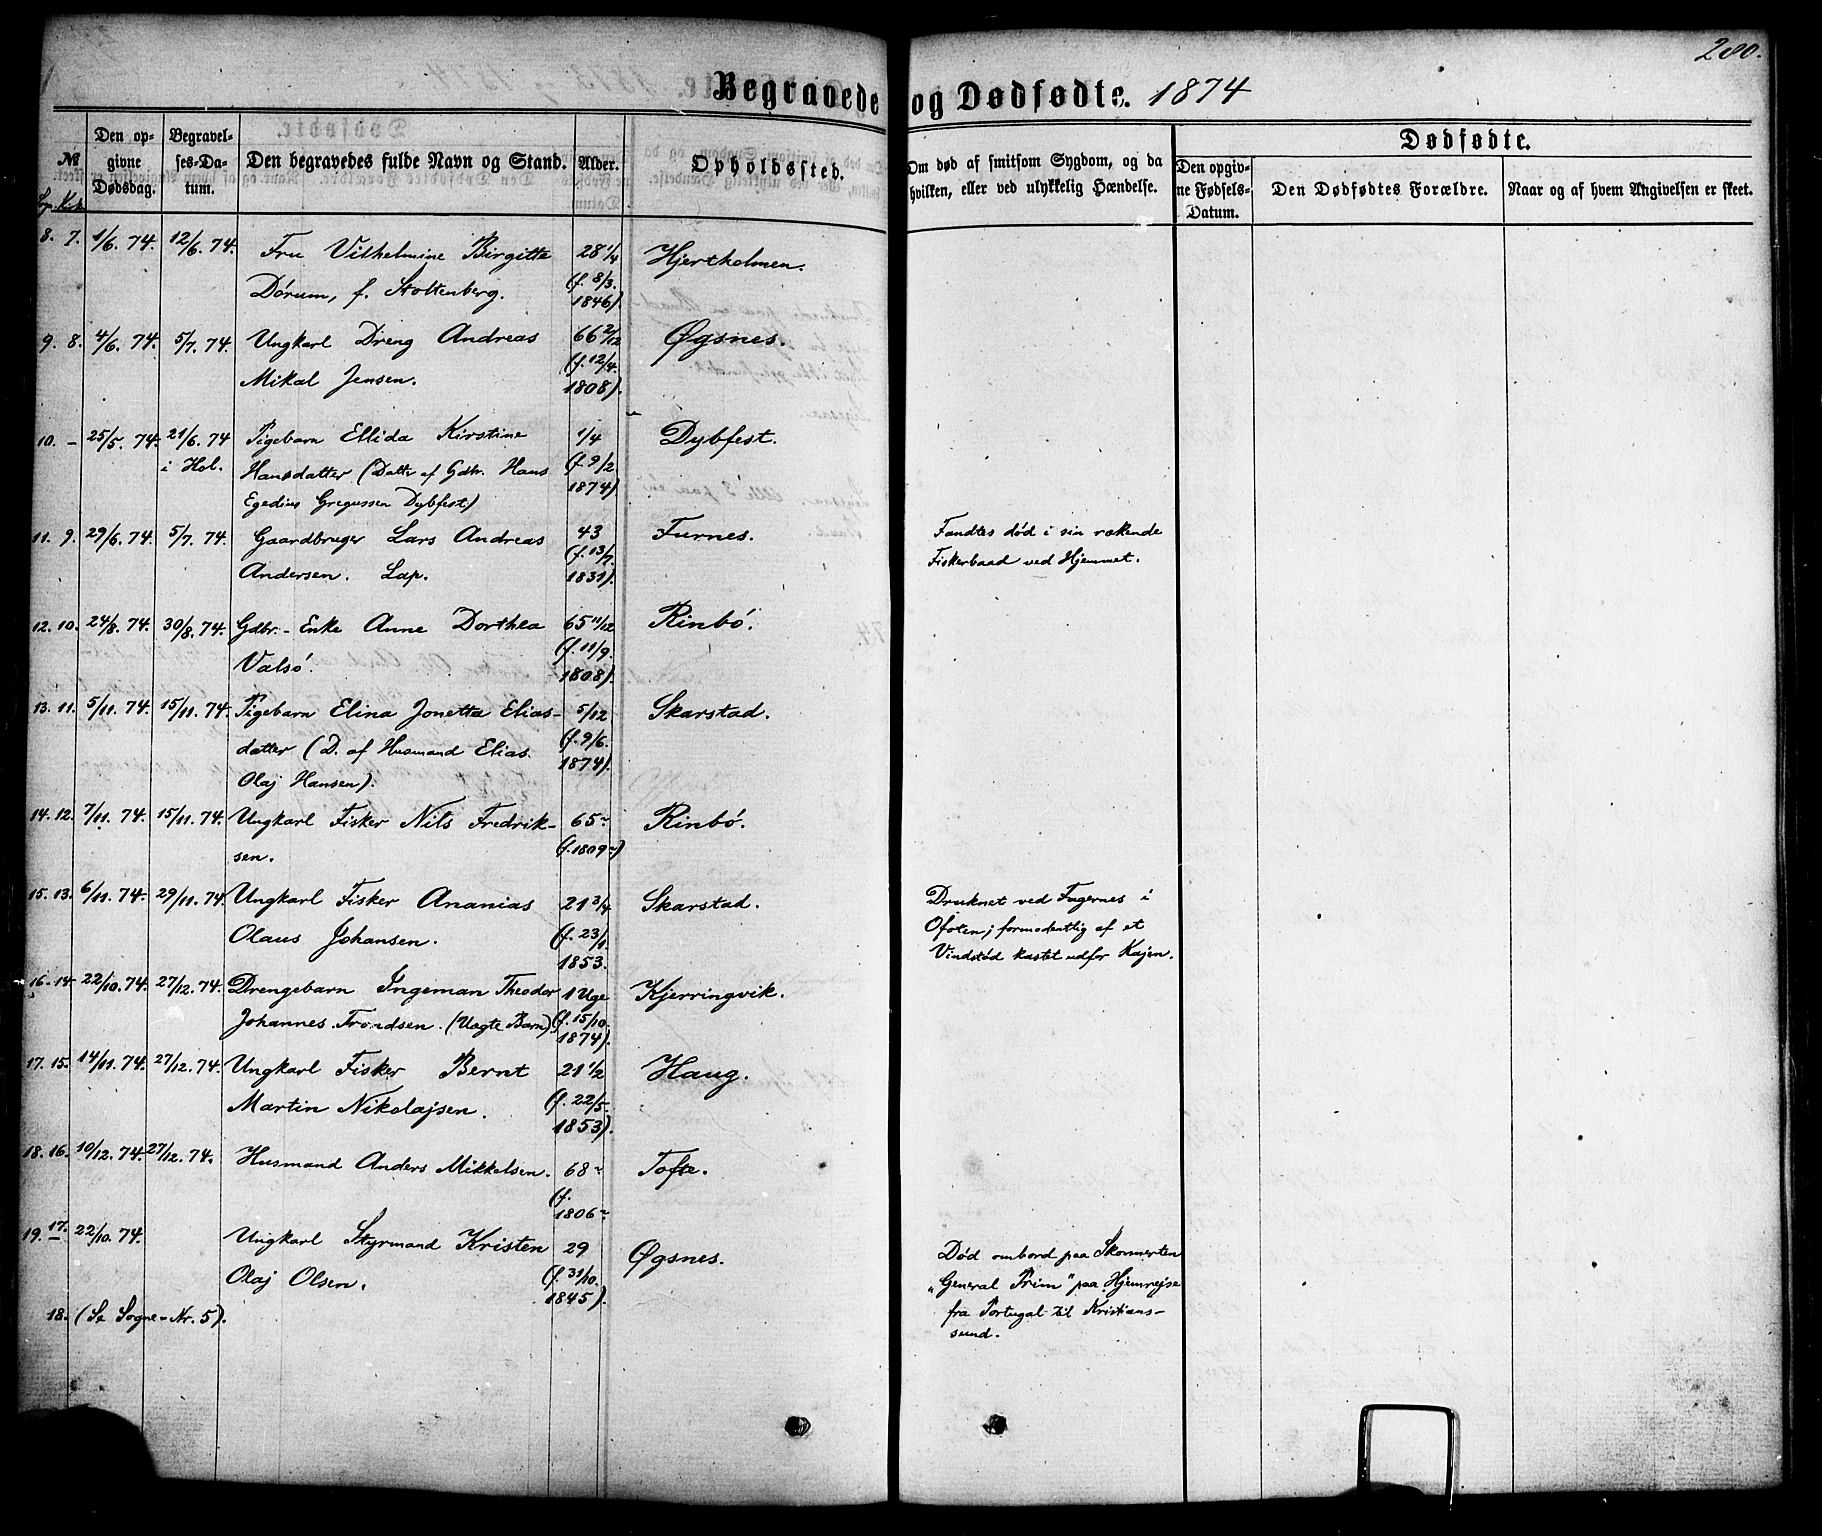 280.
Begravede og Dødfødte. 1874
Dødfødte.
№ Den opgivne Dødsdag. Begravelses-Datum. Den begravedes fulde Navn og Stand. Alder. Opholdssted. Om død af smitsom Sygdom, og da hvilken, eller ved ulykkelig Hændelse. Den opgivne Fødsels-Datum. Den Dødfødtes Forældre. Naar og af hvem Angivelsen er skeet.
8. 7. 1/6. 74. 12/6. 74. Fru Vilhelmine Birgitte 28 1/4 Hjertholmen.
Dórum, f. Stoltenberg. (f. 8/3.
1846).
9. 8. 4/6. 74. 5/7. 74. Ungkarl Dreng Andreas 66 2/12 Øgsnes.
Mikal Jensen. (f. 12/4.
1808).
10. - 25/5. 74. 21/6. 74 Pigebarn Ellida Kirstine 1/4 Dybfest.
i Hol. Hansdatter (Datter af Gdbr. Hans (f. 9/2
Egedius Gregussen Dybfest) 1874).
11. 9. 29/6. 74. 5/7. 74. Gaardbruger Lars Andreas 43 Furnes. Fandtes død i sin rækende
Andersen. Lap. (f. 13/7. Fiskerbaad ved Hjemmet.
1831).
12. 10. 24/8. 74. 30/8. 74. Gdbr.- Enke Anne Dorthea 65 11/12 Rinbó.
Valsó. (f. 11/9.
1808).
13. 11. 5/11. 74. 15/11. 74. Pigebarn Elina Jonetta Elias- 5/12 Skarstad.
datter (D. af Husmand Elias (f. 9/6.
Olaj Hansen). 1874).
14. 12. 7/11. 74. 15/11. 74. Ungkarl Fisker Nils Fredrik- 65~ Rinbó.
sen. (f. 1809~)
15. 13. 6/11. 74. 29/11. 74. Ungkarl Fisker Ananias 21 3/4 Skarstad. Druknet ved Fagernes i
Olaus Johansen. (f. 23/1. Ofoten; formodentlig af et
1853. Vindstød kastet udfor Kajen.
16. 14. 22/10. 74. 27/12. 74. Drengebarn Ingeman Theodor 1 Uge Kjerringvik.
Johannes Trondsen. (Uægte Barn) (f. 15/10.
1874).
17. 15. 14/11. 74. 27/12. 74. Ungkarl Fisker Bernt 21 1/2 Haug.
Martin Nikolajsen. (f. 22/5.
1853).
18. 16. 10/12. 74. 27/12. 74. Husmand Anders Mikkelsen. 68~ Tofte.
(f.
1806~
19. 17. 22/10. 74. Ungkarl Styrmand Kristen 29 Øgsnes. Død ombord paa Skonnerten
Olaj Olsen. (f. 31/10. „General Prim" paa Hjemrejse
1845). fra Portugal til Kristians-
sund.
18. (Se Sogne-Nr. 5).